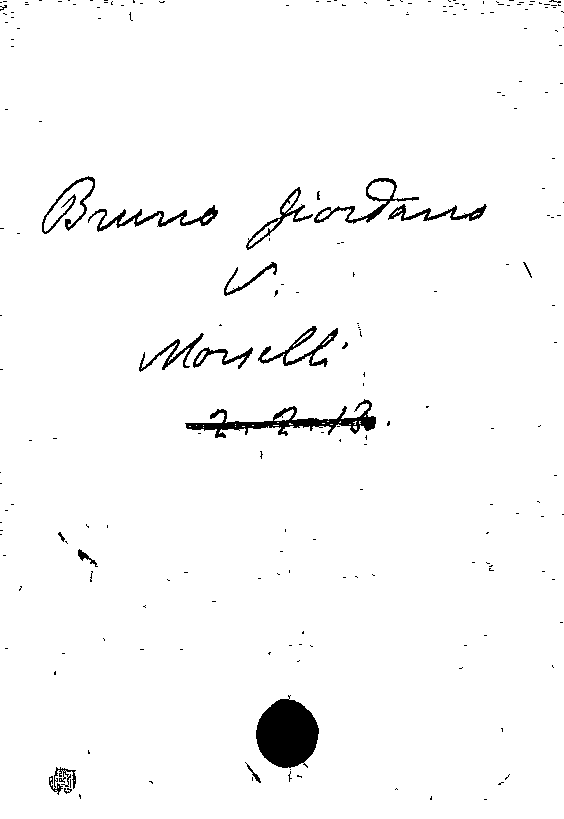 Bruno Giordano
V.
Morselli
2. 2. 13.